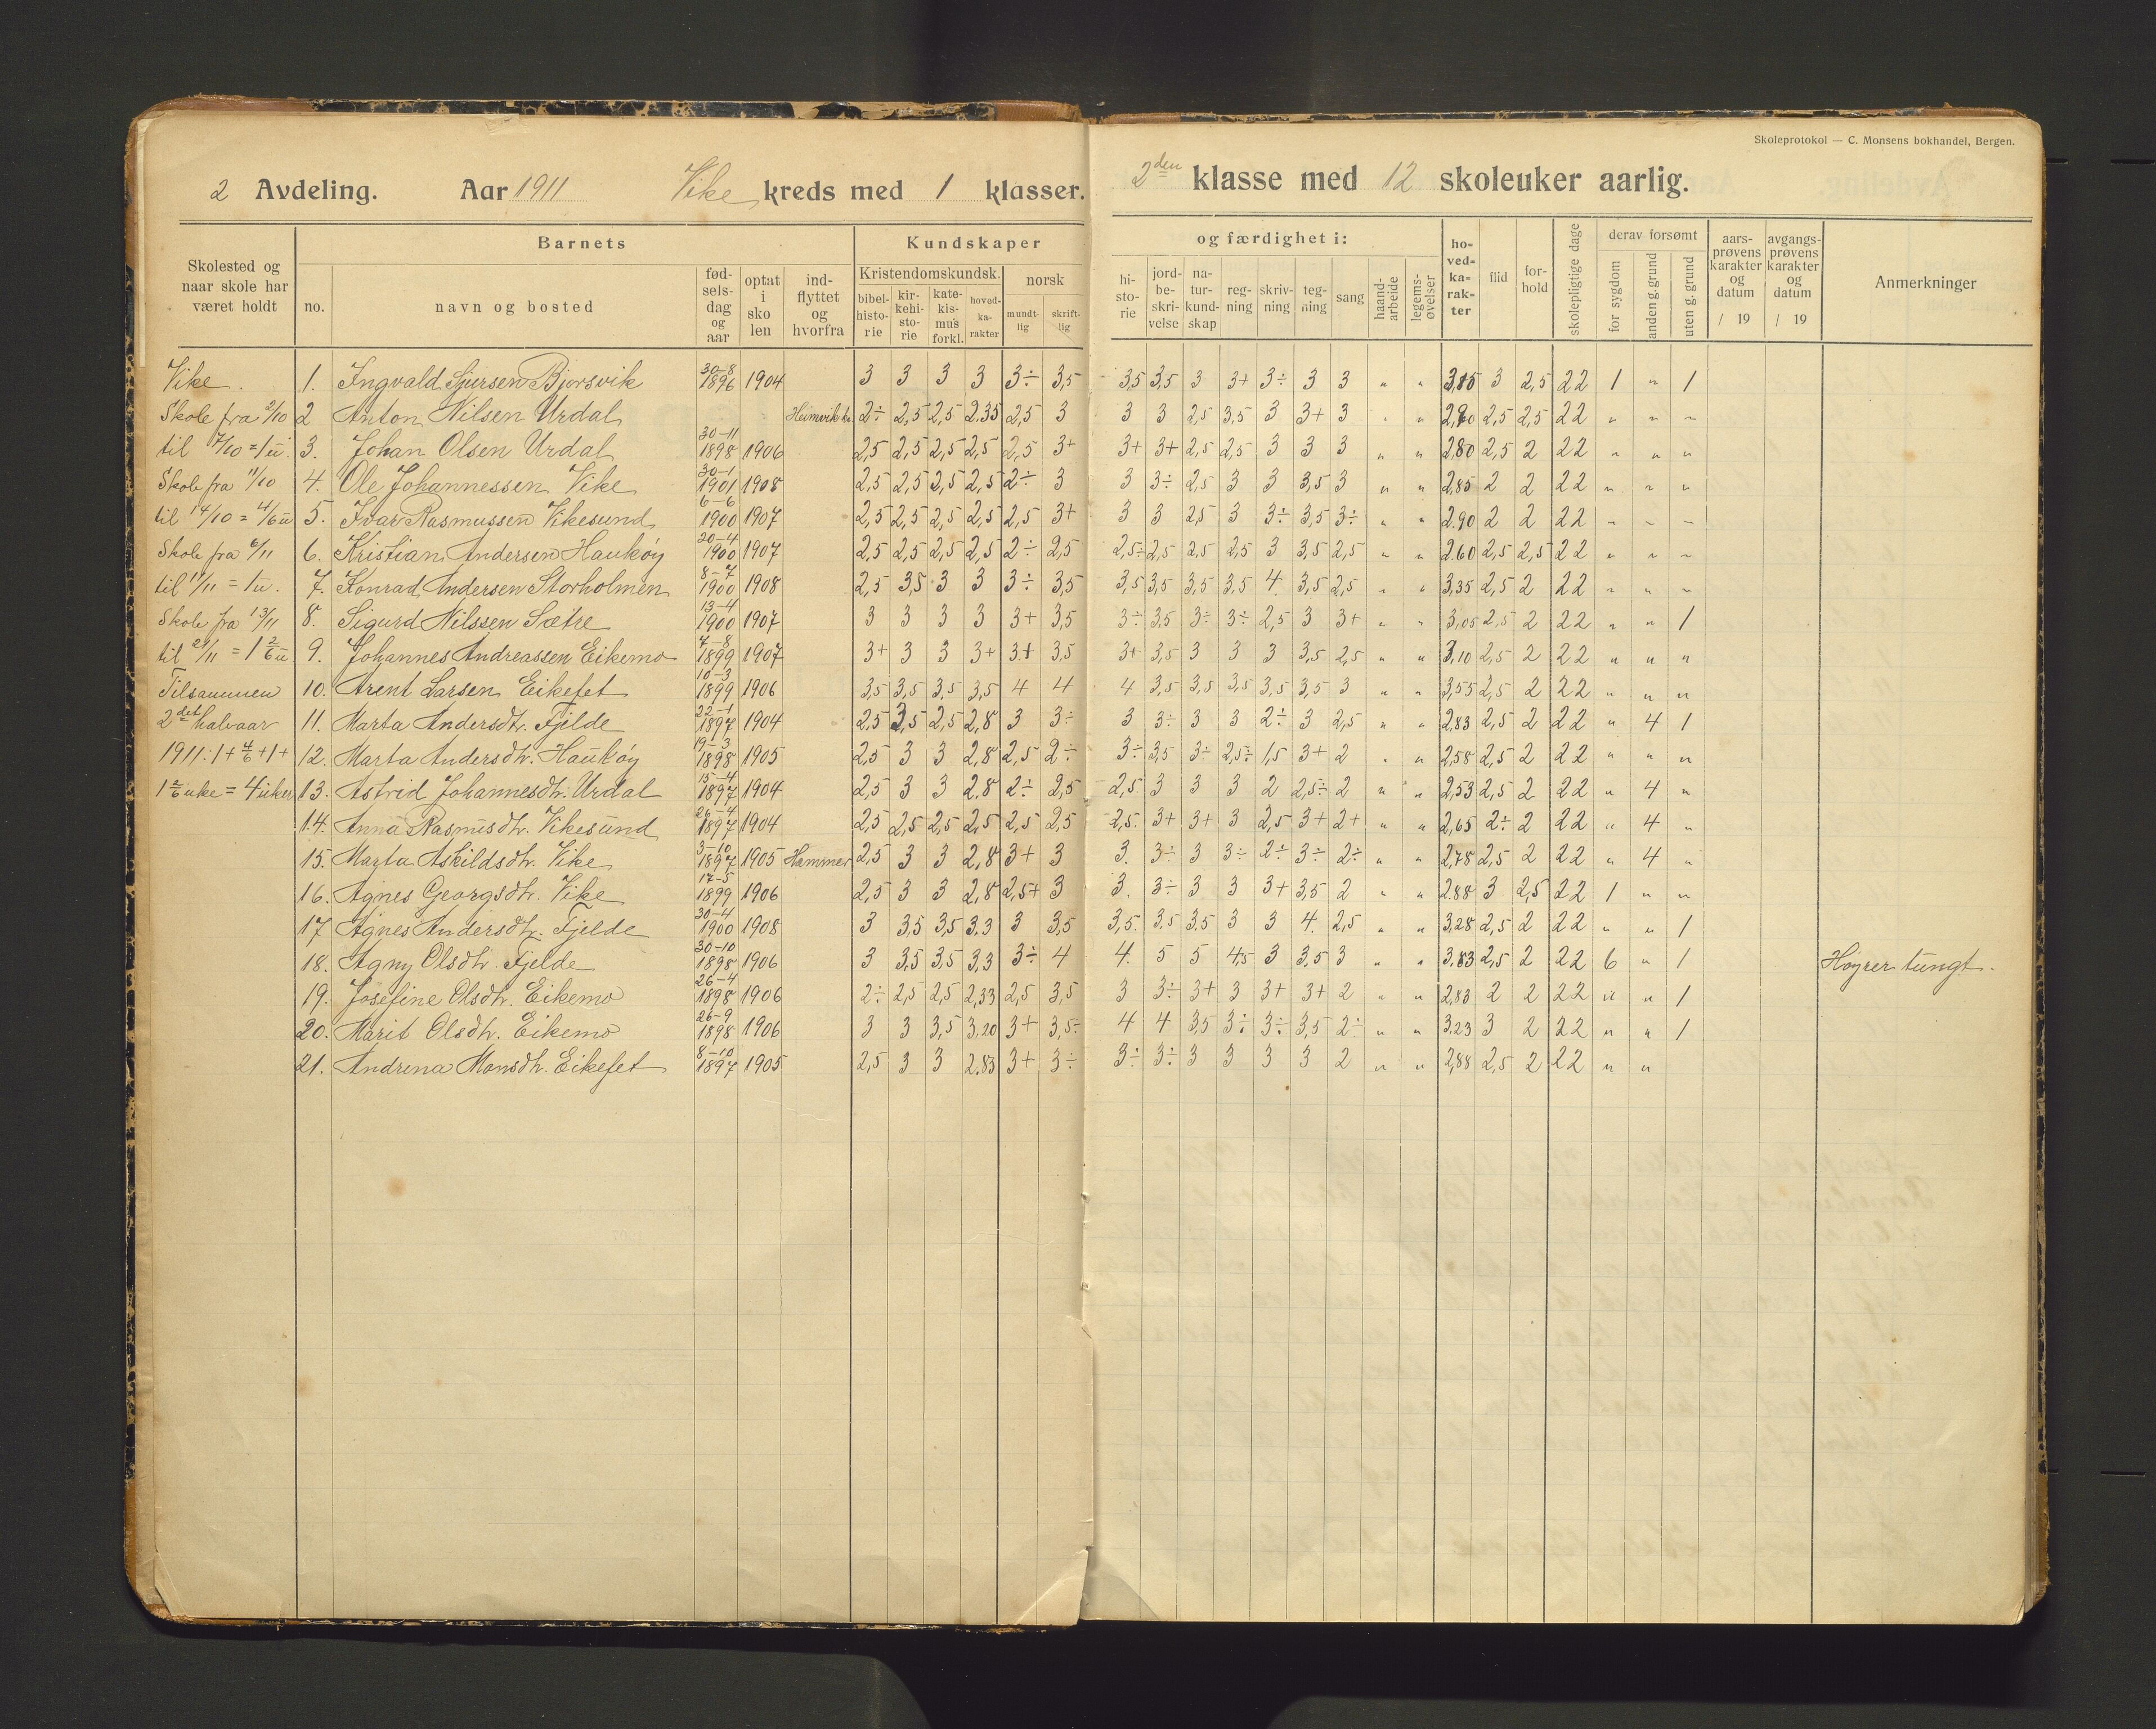 Skoleprotokol — C. Monsens bokhandel, Bergen.
2 Avdeling. Aar 1911 Vike kreds med 1 klasser. 2den klasse med 12 skoleuker aarlig.
Skolested og naar skole har været holdt
Barnets
no. navn og bosted fødselsdag og aar optat i skolen indflyttet og hvorfra
Kundskaper og færdighet i:
Kristendomskundsk. norsk
bibelhistorie kirkehistorie katekismus forkl. hovedkarakter mundtlig skriftlig
historie jordbeskrivelse naturkundskap regning skrivning tegning sang haandarbeide legemsøvelser
hovedkarakter flid forhold skolepligtige dage
derav forsømt
for sygdom anden g. grund uten g. grund
aarsprøvens karakter og datum / 19
avgangsprøvens karakter og datum / 19
Anmerkninger
Vike. 1. Ingvald Sjursen Bjorsvik 30-8 1896 1904 3 3 3 3 3÷ 3,5 3,5 3,5 3 3+ 3÷ 3 3 " " 3,15 3 2,5 22 1 " 1
Skole fra 2/10 2 Anton Nilsen Urdal Heimvik kr. 2÷ 2,5 2,5 2,35 2,5 3 3 3 2,5 3,5 3 3+ 3 " " 2,90 2,5 2,5 22 " " "
til 7/10 = 1 u. 3. Johan Olsen Urdal 30-11 1898 1906 2,5 2,5 2,5 2,5 2,5 3+ 3+ 3+ 2,5 2,5 3 3 3 " " 2,80 2,5 2 22 " " "
Skole fra 11/10 4. Ole Johannessen Vike 30-1 1901 1908 2,5 2,5 2,5 2,5 2÷ 3 3 3÷ 2,5 3 3 3,5 3 " " 2,85 2 2 22 " " "
til 14/10 = 4/6 u 5. Ivar Rasmussen Vikesund 6-6 1900 1907 2,5 2,5 2,5 2,5 2,5 3+ 3 3 2,5 3 3÷ 3,5 3÷ " " 2.90 2 2 22 " " "
Skole fra 6/11 6. Kristian Andersen Haukøy 20-4 1900 1907 2,5 2,5 2,5 2,5 2÷ 2,5 2,5÷ 2,5 2,5 2,5 3 3,5 2,5 " " 2.60 2,5 2,5 22 " " "
til 11/11 = 1 u. 7. Konrad Andersen Storholmen 8-7 1900 1908 2,5 3,5 3 3 3÷ 3,5 3,5 3,5 3,5 3,5 4. 3,5 2,5 " " 3,35 2,5 2 22 " " "
Skole fra 13/11 8. Sigurd Nilssen Sætre 13-4 1900 1907 3 3 3 3 3+ 3,5 3÷ 3,5 3÷ 3÷ 2,5 3 3+ " " 3,05 2,5 2 22 " " 1
til 21/11 = 1 2/6 u 9. Johannes Andreassen Eikemo 7-8 1899 1907 3+ 3 3 3+ 3+ 3,5 3+ 3,5 3 3 3 3,5 2,5 " " 3,10 2,5 2 22 " " "
Tilsammen 10. Arent Larsen Eikefet 10-3 1899 1906 3,5 3,5 3,5 3,5 4 4 4 3,5 3,5 3,5 3,5 3,5 3 " " 3,55 2,5 2 22 " " "
2det halvaar 11. Marta Andersdtr. Fjelde 22-1 1897 1904 2,5 3,5 2,5 2,8 3 3÷ 3 3÷ 3 3 2÷ 3 2,5 " " 2,83 2,5 2 22 " 4 1
1911: 1 + 4/6 + 1 + 12. Marta Andersdtr. Haukøy 19-3 1898 1905 2,5 3 3 2,8 2,5 2÷ 3÷ 3,5 3÷ 2,5÷ 1,5 3+ 2 " " 2,58 2,5 2 22 " " "
1 2/6 uke = 4 uker 13. Astrid Johannesdtr. Urdal 15-4 1897 1904 2,5 3 3 2,8 2÷ 2,5 2,5 3 3 3 2 2,5÷ 2 " " 2,53 2,5 2 22 " 4 "
14. Anna Rasmusdtr. Vikesund 26-4 1897 1904 2,5 2,5 2,5 2,5 2,5 2,5 2,5. 3+ 3+ 3 2,5 3+ 2+ " " 2,65 2÷ 2 22 " 4 "
15. Marta Askildsdtr. Vike 3-10 1897 1905 Hammer 2,5 3 3 2,8 3+ 3 3. 3÷ 3 3÷ 2÷ 3÷ 2÷ " " 2,78 2,5 2 22 " 4 "
16. Agnes Georgsdtr. Vike 17-5 1899 1906 2,5 3 3 2,8 2,5+ 3 3. 3÷ 3 3 3+ 3,5 2 " " 2.88 3 2,5 22 1 " "
17 Agnes Andersdtr. Fjelde 30-4 1900 1908 3 3,5 3,5 3.3 3 3,5 3,5. 3,5 3,5 3 3 4. 2,5 " " 3,28 2,5 2 22 " " 1
18. Agny Olsdtr. Fjelde 30-10 1898 1906 3 3,5 3,5 3,3 3÷ 4 4. 5 5 4,5 3 3,5 3 " " 3.83 2,5 2 22 6 " 1 Høyrer tungt.
19. Josefine Olsdtr. Eikemo 26-4 1898 1906 2÷ 2,5 2,5 2,33 2,5 3,5 3 3÷ 3+ 3 3+ 3+ 2 " " 2,83 2 2 22 " " 1
20. Marit Olsdtr. Eikemo 26-9 1898 1906 3 3 3,5 3,20 3+ 3,5÷ 4 4 3,5 3÷ 3÷ 3,5 2÷ " " 3,23 3 2 22 " " 1
21. Andrina Monsdtr. Eikefet 8-10 1897 1905 2,5 3 3 2.83 3+ 3÷ 3÷ 3÷ 3 3 3 3 2 " " 2,88 2,5 2 22 " "